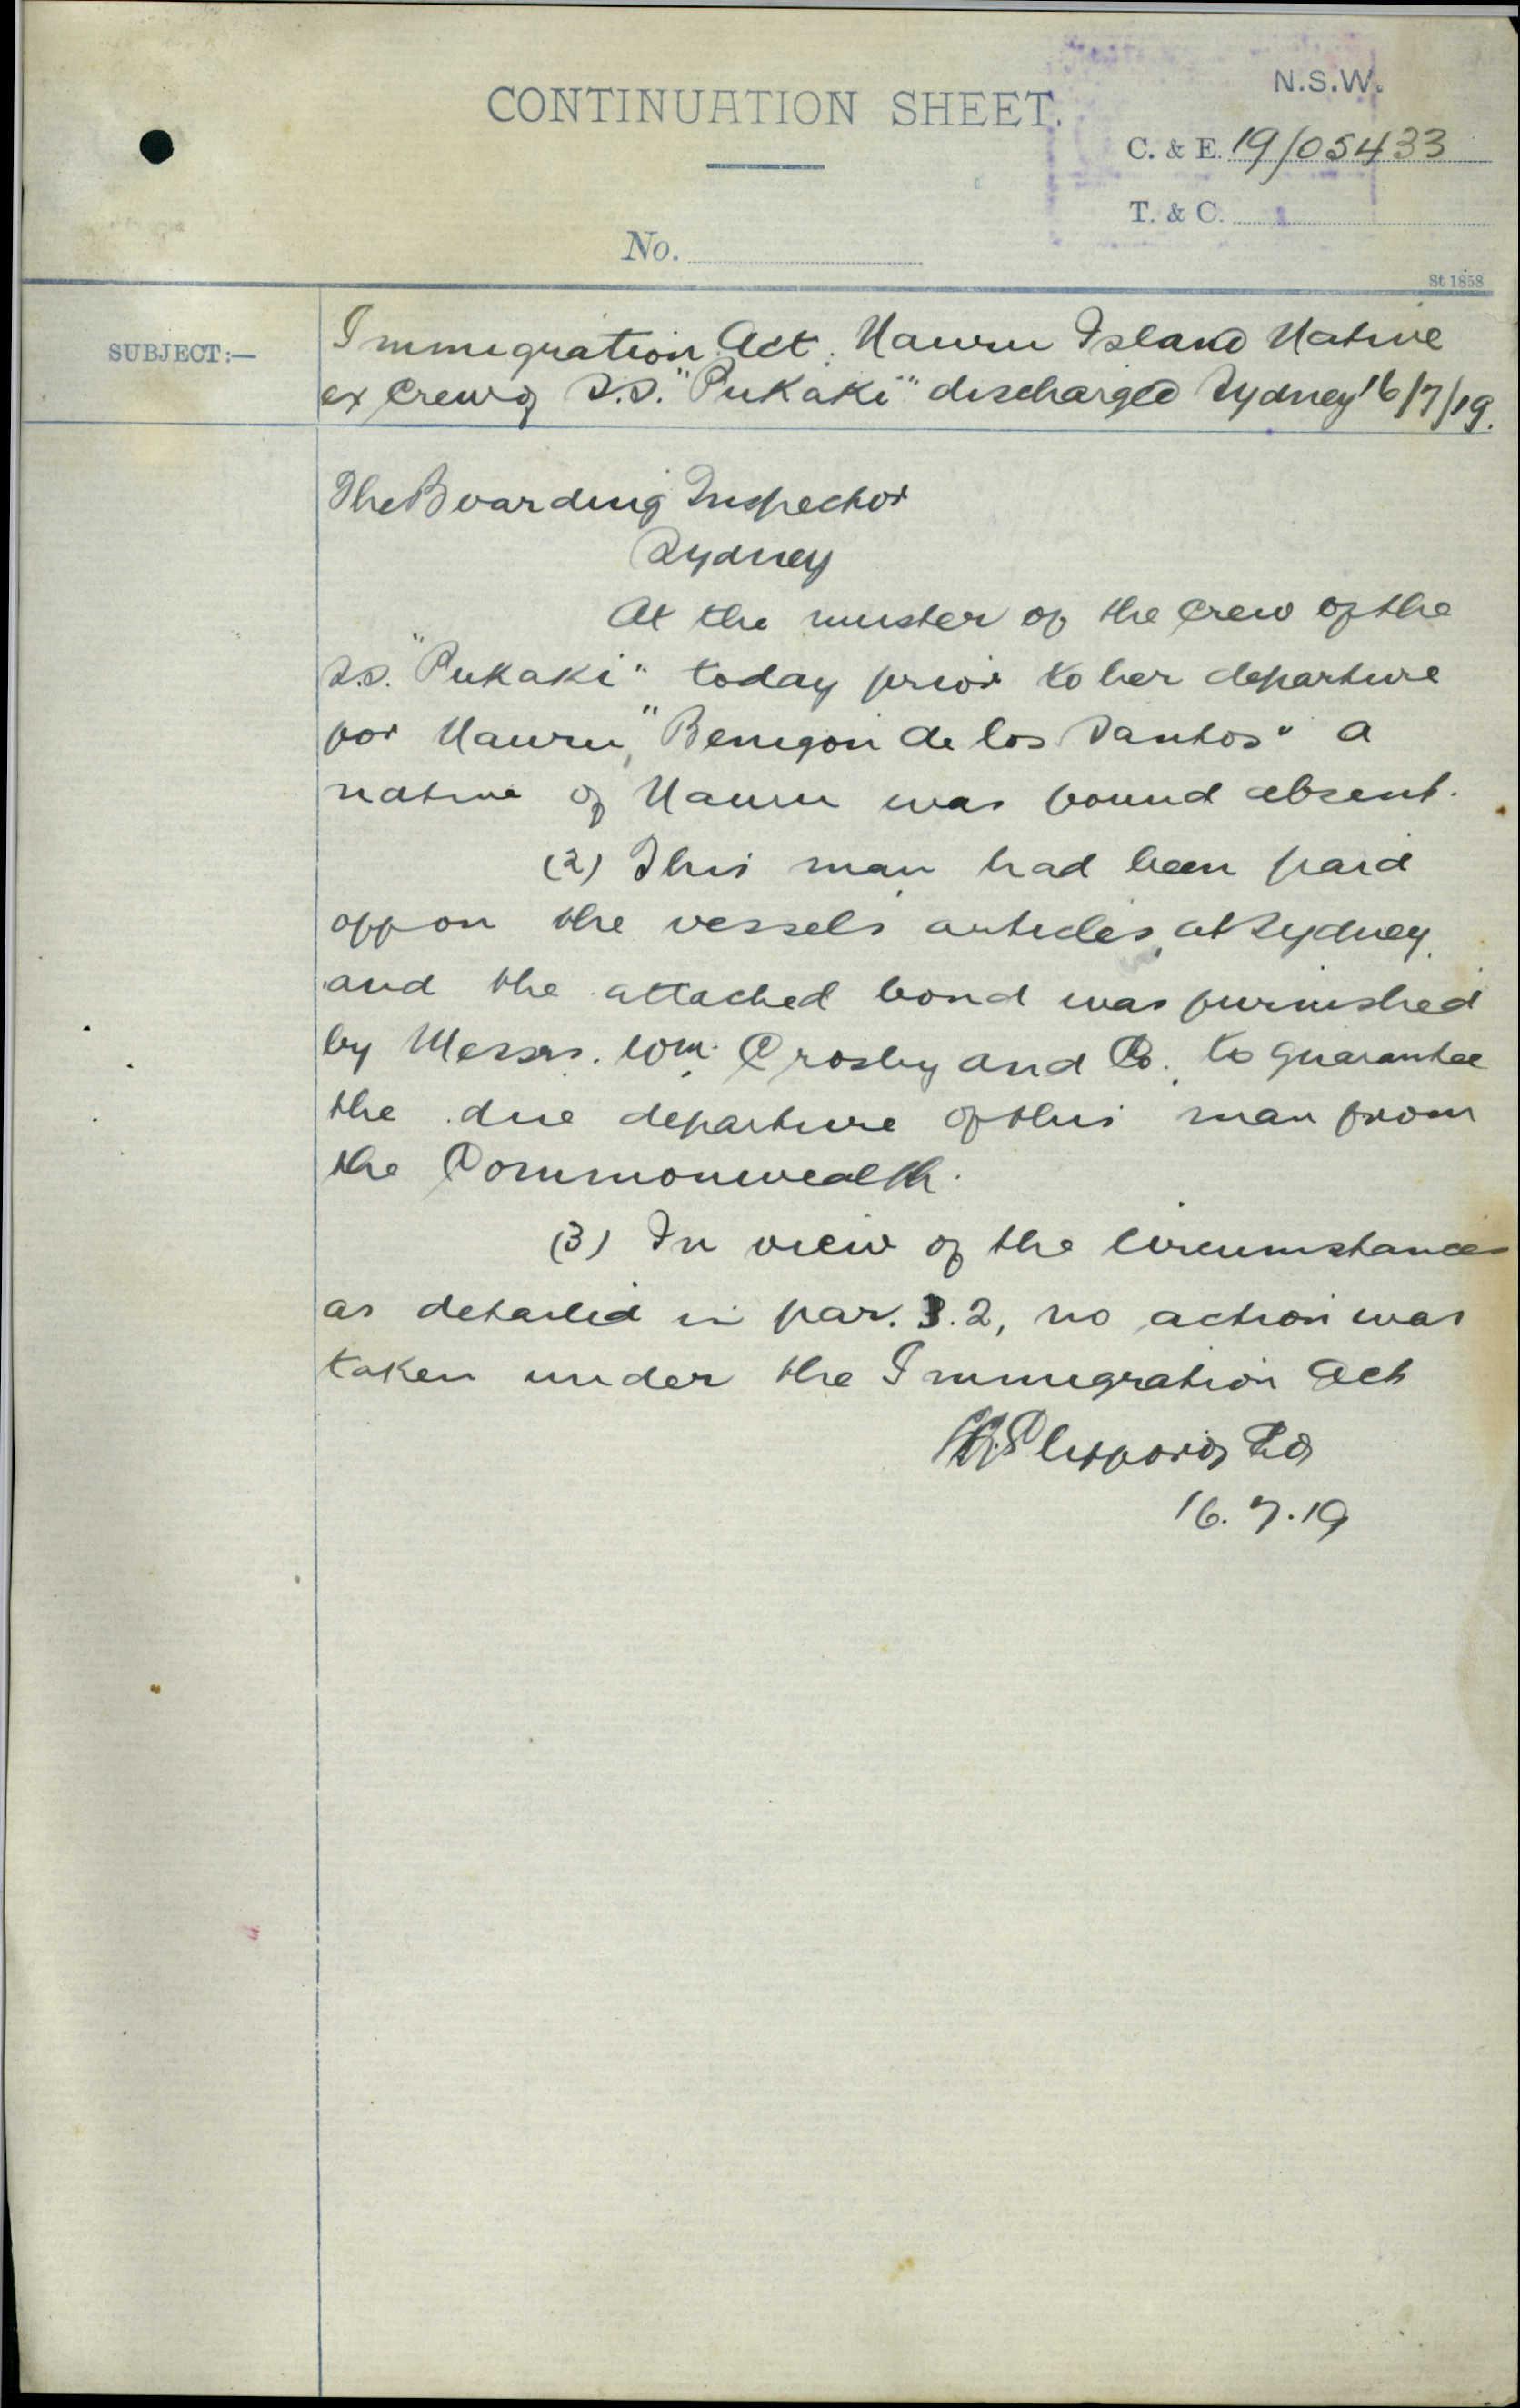 N.S.W.
CONTINUATION SHEET.
C. & E. 19/05433
T. & C.
No.
St 1858
SUBJECT:—
Immigration Act: Nauru Island Native
ex Crew of S.S. "Pukaki" discharged Sydney 16/7/19.
The Boarding Inspector
Sydney
At the muster of the Crew of the
S.S. "Pukaki" today prior to her departure
for Nauru, "Benigon de los Santos" a
native of Nauru was found absent.
(2) This man had been paid
off on the vessels articles, at Sydney,
and the attached bond was furnished
by Messrs. Wm. Crosby and Co., to guarantee
the due departure of this man from
the Commonwealth.
(3) In view of the Circumstances
as detailed in par. 2, no action was
taken under the Immigration Act
16.7.19